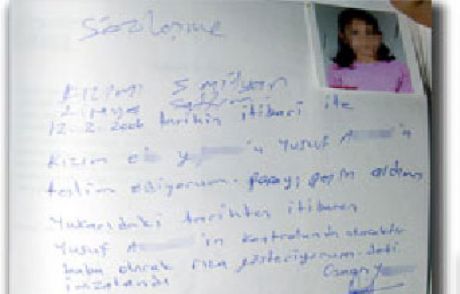 Sözleşme
KIZIMI 5 milyar
Liraya sattım
12.2.2006 tarihin itibari ile
Kızım e y 'ı Yusuf A 'a
teslim ediyorum. parayı peşin aldım
Yukarıdaki tarihten itibaren
Yusuf A 'ın kontrolunda olacaktır
baba olarak rıza gösteriyorum.
imzaladı Osman Y